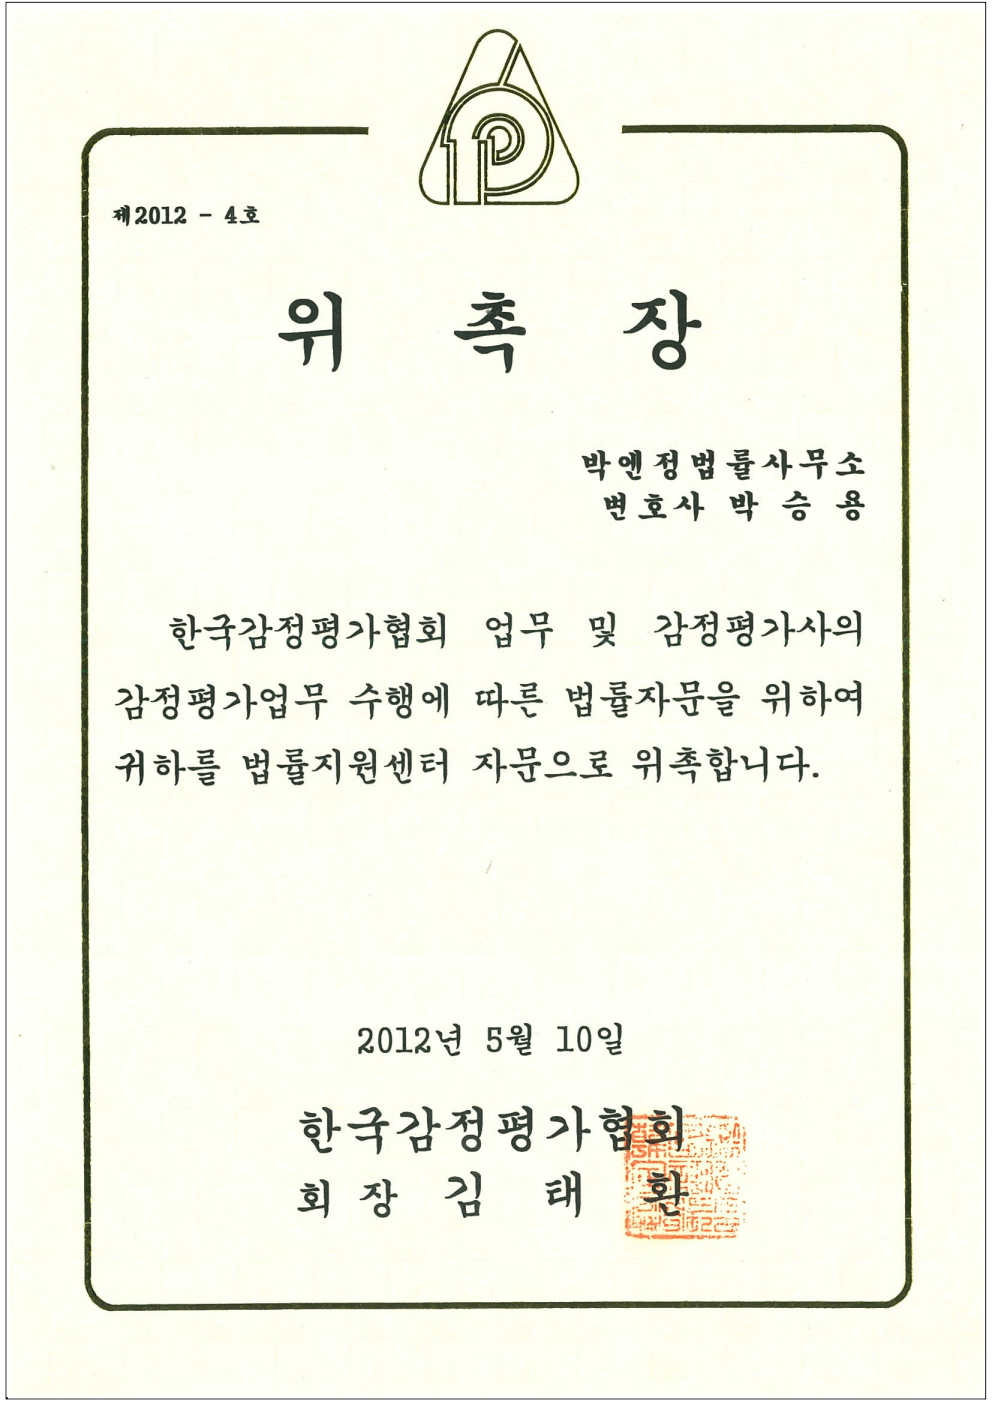 제2012 - 4호
위 촉 장
박앤정법률사무소
변호사 박 승 용
한국감정평가협회 업무 및 감정평가사의
감정평가업무 수행에 따른 법률자문을 위하여
귀하를 법률지원센터 자문으로 위촉합니다.
2012년 5월 10일
한국감정평가협회
회 장 김 태 환